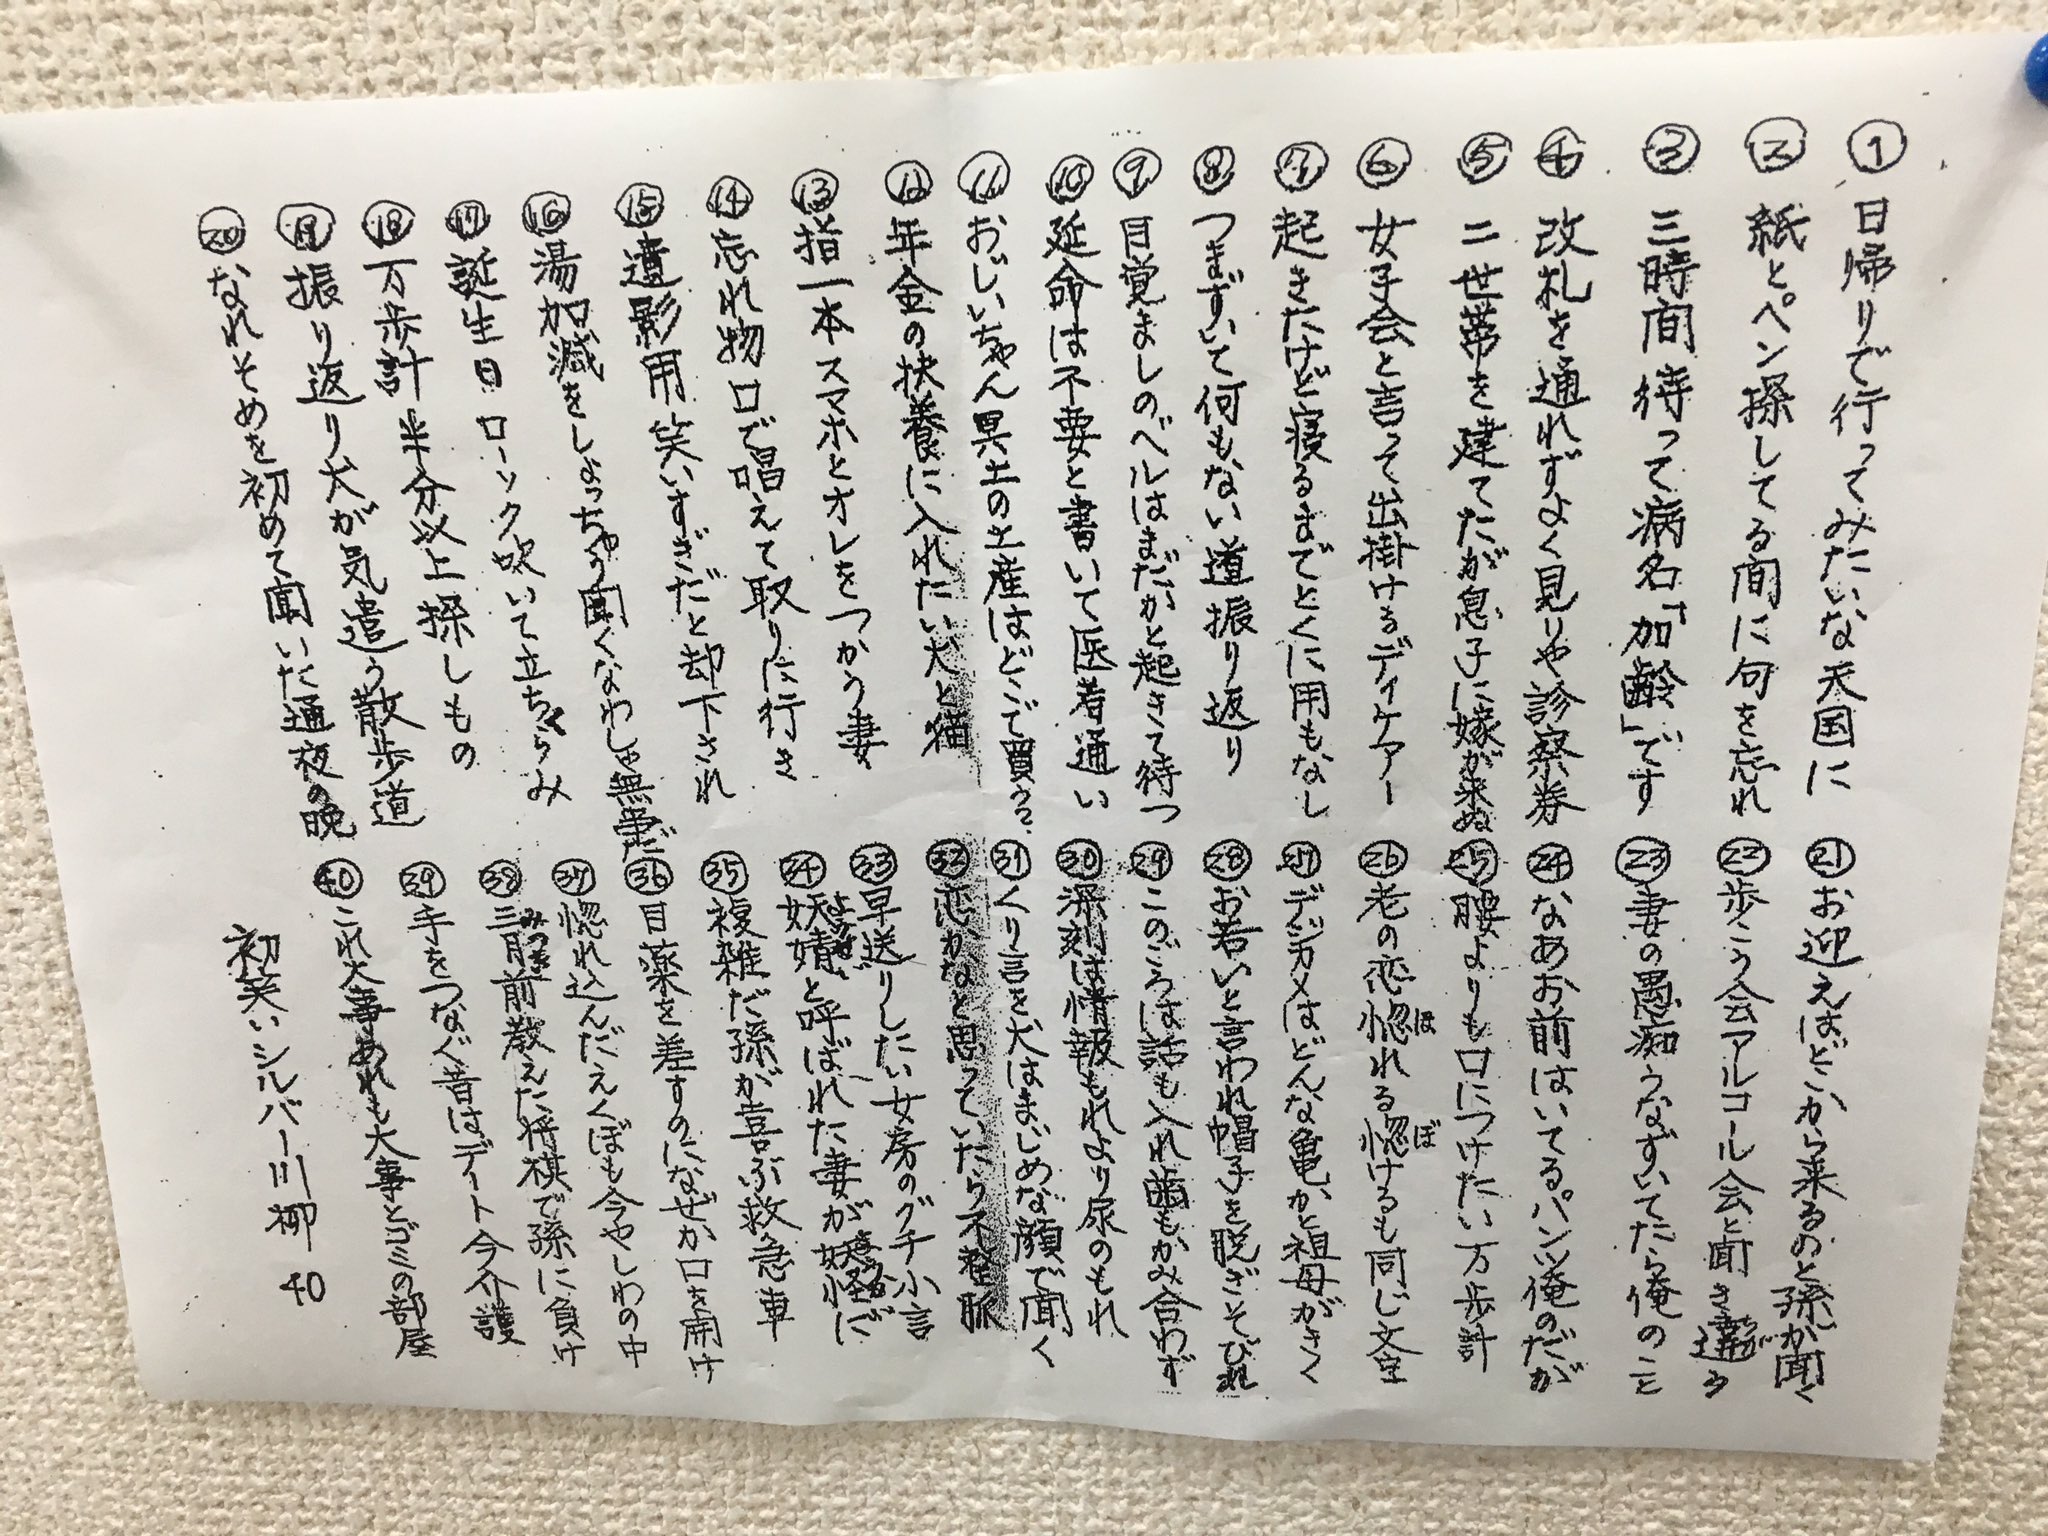 ① 日帰りで行ってみたいな天国に
② 紙とペン探してる間に句を忘れ
③ 三時間待って病名「加齢」です
④ 改札を通れずよく見りゃ診察券
⑤ 二世帯を建てたが息子に嫁が来ぬ
⑥ 女子会と言って出掛けるデイケアー
⑦ 起きたけど寝るまでとくに用もなし
⑧ つまずいて何もない道振り返り
⑨ 目覚ましのベルはまだかと起きて待つ
⑩ 延命は不要と書いて医者通い
⑪ おじいちゃん冥土の土産はどこで買うの?
⑫ 年金の扶養に入れたい犬と猫
⑬ 指一本スマホとオレをつかう妻
⑭ 忘れ物口で唱えて取りに行き
⑮ 遺影用笑いすぎだと却下され
⑯ 湯加減をしょっちゅう聞くなわしは無事だ
⑰ 誕生日ローソク吹いて立ちくらみ
⑱ 万歩計半分以上探しもの
⑲ 振り返り犬が気遣う散歩道
⑳ なれそめを初めて聞いた通夜の晩
㉑ お迎えはどこから来るのと孫が聞く
㉒ 歩こう会アルコール会と聞き違う
㉓ 妻の愚痴うなずいてたら俺のこと
㉔ なあお前はいてるパンツ俺のだが
㉕ 腰よりも口につけたい万歩計
㉖ 老の恋惚れる惚けるも同じ文字
ほ
ぼ
㉗ デジカメはどんな亀かと祖母がきく
㉘ お若いと言われ帽子を脱ぎそびれ
㉙ このごろは話も入れ歯もかみ合わず
㉚ 深刻は情報もれより尿のもれ
㉛ くり言を犬はまじめな顔で聞く
㉜ 恋かなと思っていたら不整脈
㉝ 早送りしたい女房のグチ小言
㉞ 妖精と呼ばれた妻が妖怪に
㉟ 複雑だ孫が喜ぶ救急車
㊱ 目薬を差すのになぜか口を開け
㊲ 惚れ込んだえくぼも今やしわの中
㊳ 三月前教えた将棋で孫に負け
みつき
㊴ 手をつなぐ昔はデート今介護
㊵ これ大事あれも大事とゴミの部屋
初笑いシルバー川柳 40